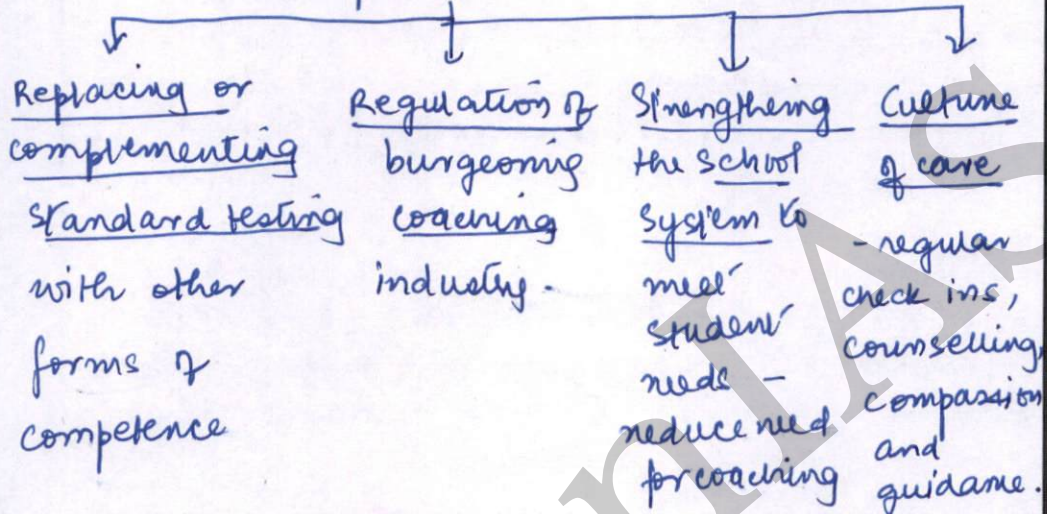 Replacing or
complementing
standard testing
with other
forms of
competence
Regulation of
burgeoning
coaching
industry.
Strengtheing
the school
system to
meet
student
needs –
reduce need
for coaching
Culture
of care
- regular
check ins,
counselling,
compassion
and
guidance.
IAS